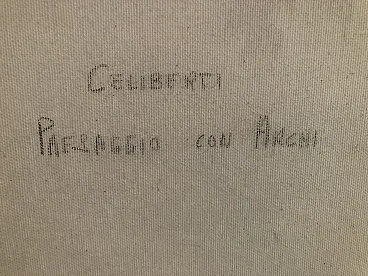 CELIBERTI
PAESAGGIO CON ARCHI